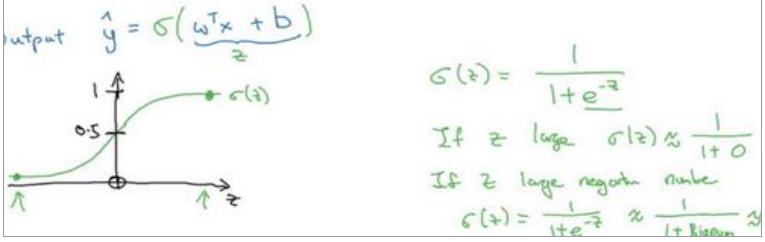 output ŷ = σ(wᵀx + b)
z
1
σ(z)
0.5
z
σ(z) = 1 / (1 + e⁻ᶻ)
If z large σ(z) ≈ 1 / (1 + 0)
If z large negative number
σ(z) = 1 / (1 + e⁻ᶻ) ≈ 1 / (1 + Bignum) ≈